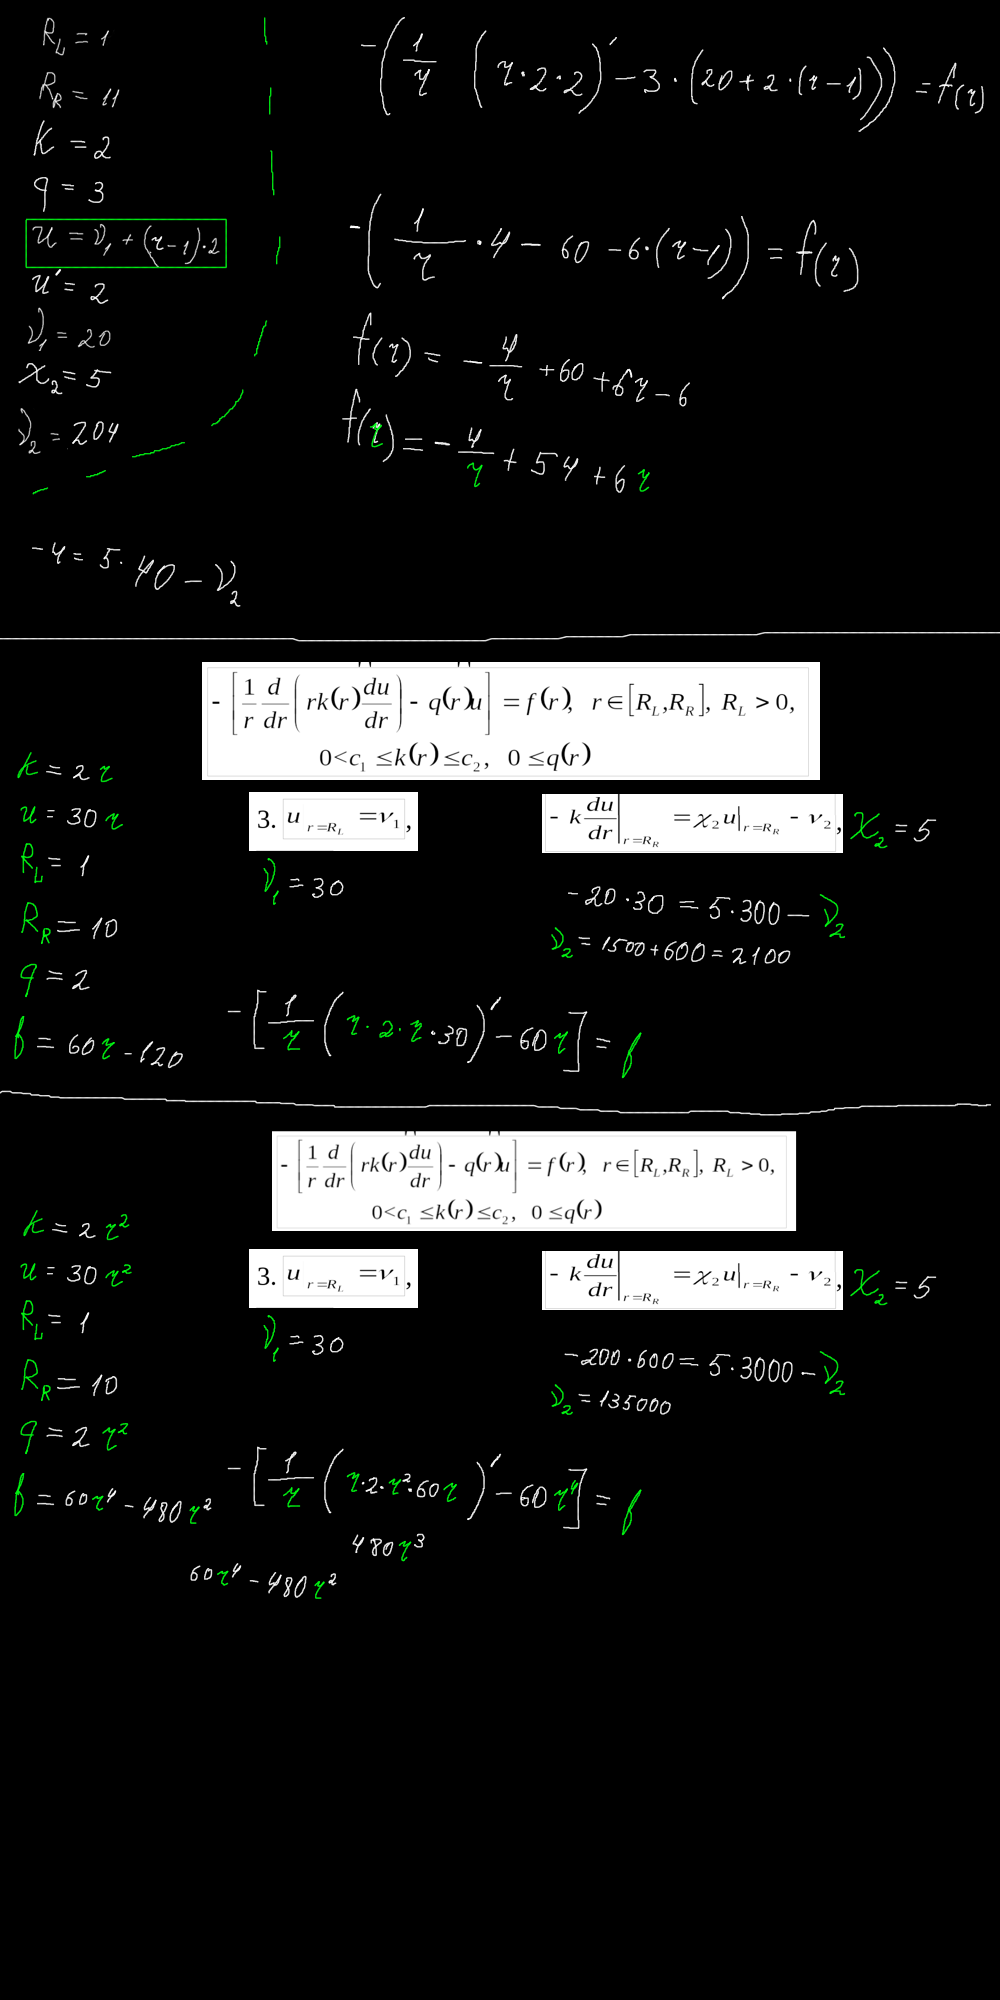 R_L = 1
R_R = 11
K = 2
q = 3
u = ν₁ + (r-1)·2
u' = 2
ν₁ = 20
χ₂ = 5
ν₂ = 204
-(1/r (r·2·2)' - 3·(20+2·(r-1))) = f(r)
-(1/r ·4 - 60 - 6·(r-1)) = f(r)
f(r) = -4/r + 60 + 6r - 6
f(r) = -4/r + 54 + 6r
-4 = 5·40 - ν₂
-[1/r d/dr (rk(r) du/dr) - q(r)u] = f(r), r∈[R_L,R_R], R_L > 0,
0<c₁ ≤k(r) ≤c₂, 0 ≤q(r)
k = 2r
u = 30r
R_L = 1
R_R = 10
q = 2
f = 60r - 120
3. u r=R_L =ν₁,
ν₁ = 30
- k du/dr|r=R_R = χ₂u|r=R_R - ν₂, χ₂ = 5
-20·30 = 5·300 - ν₂
ν₂ = 1500+600 = 2100
-[1/r (r·2·r·30)' - 60r] = f
-[1/r d/dr (rk(r) du/dr) - q(r)u] = f(r), r∈[R_L,R_R], R_L > 0,
0<c₁ ≤k(r) ≤c₂, 0 ≤q(r)
k = 2r²
u = 30r²
R_L = 1
R_R = 10
q = 2r²
f = 60r⁴ - 480r²
3. u r=R_L =ν₁,
ν₁ = 30
- k du/dr|r=R_R = χ₂u|r=R_R - ν₂, χ₂ = 5
-200·600 = 5·3000 - ν₂
ν₂ = 135000
-[1/r (r·2·r²·60r)' - 60r⁴] = f
480r³
60r⁴ - 480r²